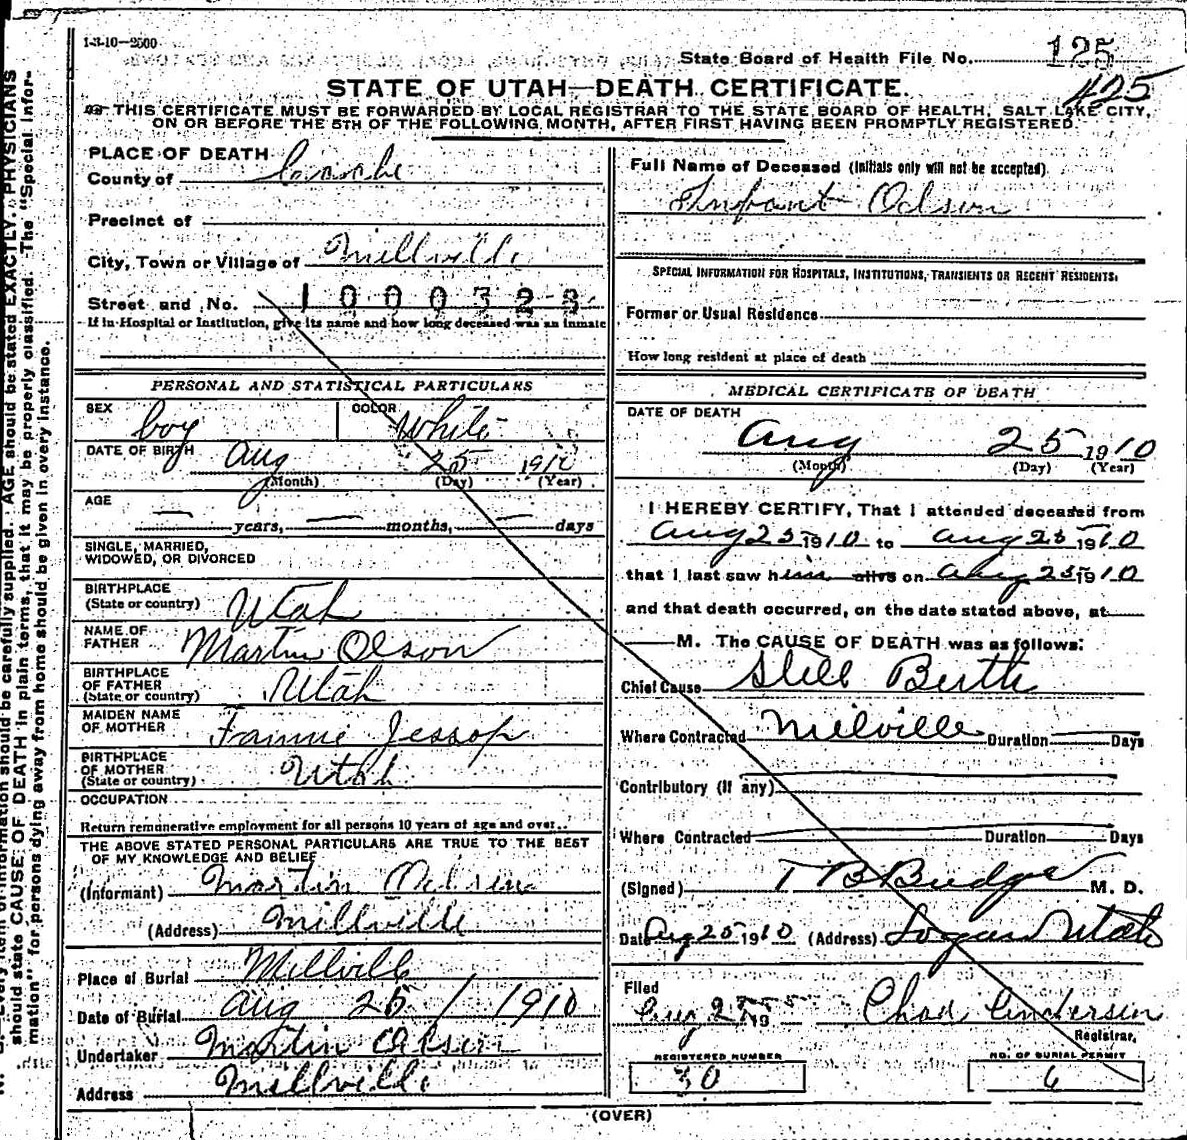 1-3-10—2500
State Board of Health File No. 125
425
STATE OF UTAH—DEATH CERTIFICATE.
THIS CERTIFICATE MUST BE FORWARDED BY LOCAL REGISTRAR TO THE STATE BOARD OF HEALTH, SALT LAKE CITY,
ON OR BEFORE THE 5TH OF THE FOLLOWING MONTH, AFTER FIRST HAVING BEEN PROMPTLY REGISTERED.
PLACE OF DEATH
County of Cache
Precinct of
City, Town or Village of Millville
Street and No. 1000328
If in Hospital or Institution, give its name and how long deceased was an inmate
PERSONAL AND STATISTICAL PARTICULARS
SEX boy COLOR White
DATE OF BIRTH Aug 25 1910
(Month) (Day) (Year)
AGE
— years, — months, — days
SINGLE, MARRIED,
WIDOWED, OR DIVORCED
BIRTHPLACE
(State or country) Utah
NAME OF
FATHER Martin Olson
BIRTHPLACE
OF FATHER
(State or country) Utah
MAIDEN NAME
OF MOTHER Fannie Jessop
BIRTHPLACE
OF MOTHER
(State or country) Utah
OCCUPATION
Return remunerative employment for all persons 10 years of age and over.
THE ABOVE STATED PERSONAL PARTICULARS ARE TRUE TO THE BEST
OF MY KNOWLEDGE AND BELIEF
(Informant) Martin Olson
(Address) Millville
Place of Burial Millville
Date of Burial Aug 26 / 1910
Undertaker Martin Olson
Address Millville
Full Name of Deceased (Initials only will not be accepted)
Infant Olson
SPECIAL INFORMATION FOR HOSPITALS, INSTITUTIONS, TRANSIENTS OR RECENT RESIDENTS.
Former or Usual Residence
How long resident at place of death
MEDICAL CERTIFICATE OF DEATH
DATE OF DEATH
Aug 25 1910
(Month) (Day) (Year)
I HEREBY CERTIFY, That I attended deceased from
Aug 25 1910 to Aug 25 1910
that I last saw him alive on Aug 25 1910
and that death occurred, on the date stated above, at
— M. The CAUSE OF DEATH was as follows:
Chief Cause Still Birth
Where Contracted Millville Duration Days
Contributory (If any)
Where Contracted Duration Days
(Signed) T B Budge M. D.
Date Aug 25 1910 (Address) Logan Utah
Filed
Aug 19 Chas Anderson
Registrar.
REGISTERED NUMBER NO. OF BURIAL PERMIT
30 6
(OVER)
should be carefully supplied. AGE should be stated EXACTLY. PHYSICIANS
should state CAUSE OF DEATH in plain terms, that it may be properly classified. The "Special Infor-
mation" for persons dying away from home should be given in every instance.